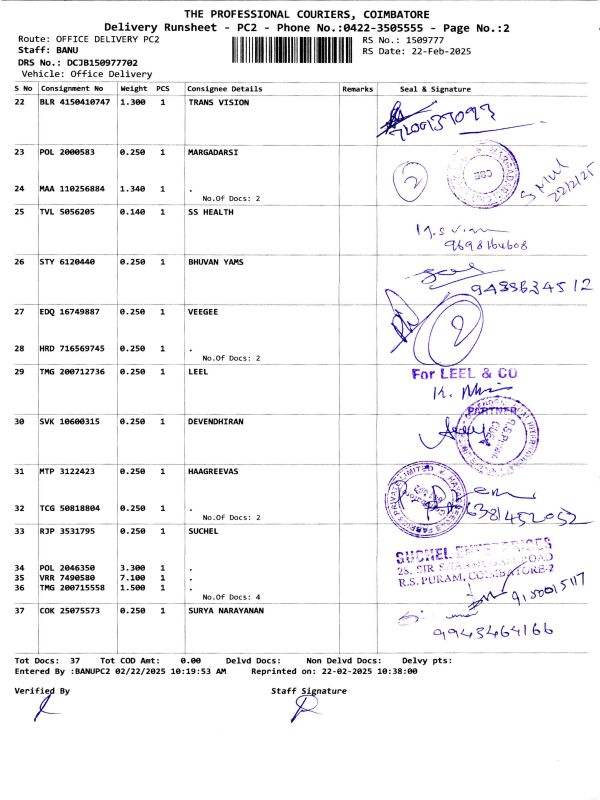 THE PROFESSIONAL COURIERS, COIMBATORE
Delivery Runsheet - PC2 - Phone No.:0422-3505555 - Page No.:2
Route: OFFICE DELIVERY PC2 RS No.: 1509777
Staff: BANU RS Date: 22-Feb-2025
DRS No.: DCJB150977702
Vehicle: Office Delivery
S No Consignment No Weight PCS Consignee Details Remarks Seal & Signature
22 BLR 4150410747 1.300 1 TRANS VISION
23 POL 2000583 0.250 1 MARGADARSI
2
22/2/25
24 MAA 110256884 1.340 1 .
No.Of Docs: 2
25 TVL 5056205 0.140 1 SS HEALTH
9698164608
26 STY 6120440 0.250 1 BHUVAN YAMS
9435634512
27 EDQ 16749887 0.250 1 VEEGEE
2
28 HRD 716569745 0.250 1 .
No.Of Docs: 2
29 TMG 200712736 0.250 1 LEEL
For LEEL & CO
PARTNER
30 SVK 10600315 0.250 1 DEVENDHIRAN
31 MTP 3122423 0.250 1 HAAGREEVAS
32 TCG 50818804 0.250 1 .
No.Of Docs: 2
6381452052
33 RJP 3531795 0.250 1 SUCHEL
SUCHEL ENTERPRISES
34 POL 2046350 3.300 1 .
35 VRR 7490580 7.100 1 .
R.S. PURAM, COIMBATORE-2
36 TMG 200715558 1.500 1 .
No.Of Docs: 4
37 COK 25075573 0.250 1 SURYA NARAYANAN
9943464166
Tot Docs: 37 Tot COD Amt: 0.00 Delvd Docs: Non Delvd Docs: Delvy pts:
Entered By :BANUPC2 02/22/2025 10:19:53 AM Reprinted on: 22-02-2025 10:38:00
Verified By Staff Signature